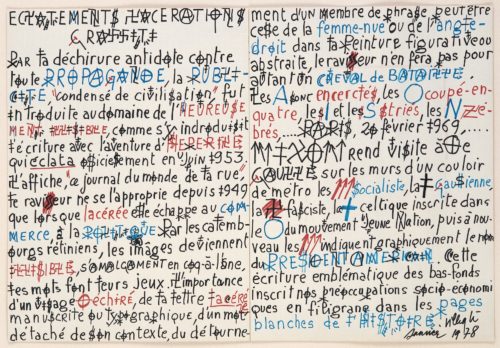 ECLATEMENTS LACERATIONS
GRAFFITI
PAR la déchirure antidote contre
toute PROPAGANDE, la PUBLI-
CITE "condensé de civilisation" fut
introduite au domaine de l'HEUREUSE
MENT ILLISIBLE, comme s'y introduisit
l'écriture avec l'aventure d'HEPERILE
qui éclata officiellement en Juin 1953.
L'affiche, "ce journal du monde de la rue",
le ravisseur ne se l'approprie depuis 1949
que lorsque lacérée elle échappe au COM-
MERCE, à la POLITIQUE. Par les calemb-
ours rétiniens, les images deviennent
ILLISIBLES, s'AMALGAMENT en coq-à-l'âne,
les mots font leurs jeux. L'importance
d'un visage déchiré, de la lettre lacérée
manuscrite ou typographique, d'un mot
détaché de son contexte, du détourne-
ment d'un membre de phrase peut être
celle de la femme-nue ou de l'angle-
droit dans la peinture figurative ou
abstraite, le ravisseur n'en fera pas pour
autant un CHEVAL de BATAILLE.
Les A sont encerclés, les O coupé-en-
quatre, les I et les S striés, les N zé-
brés......PARIS, 28 février 1969,......
NIXON rend visite à De
GAULLE, sur les murs d'un couloir
de métro les socialiste, la gaullienne,
fasciste, la celtique inscrite dans
l'O du mouvement Jeune Nation, puis à nou-
veau les indiquent graphiquement le nom
du PRESIDENT AMERICAIN. Cette
écriture emblématique des bas-fonds
inscrit nos préoccupations socio-économi-
ques en filigrane dans les pages
blanches de l'HISTOIRE. Villeglé
janvier 1978